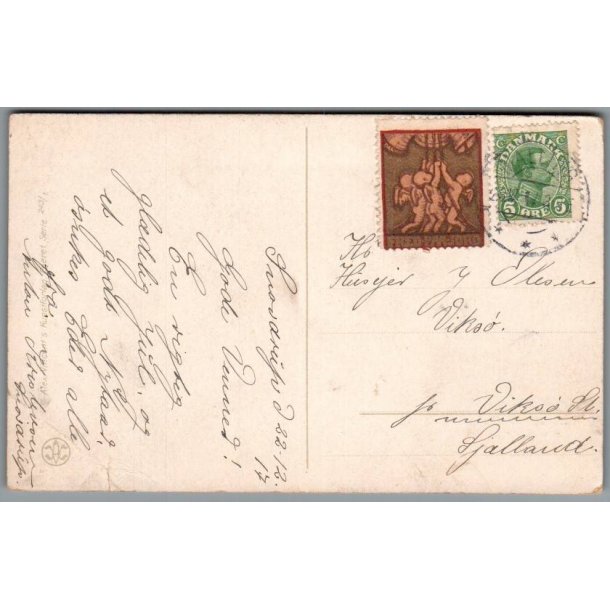 Snosdrup d 22/12.
17
Gode Venner!
En rigtig
glædelig Jul, og
et godt Nytaar
ønskes Eder alle
fra
DANMARK
5 ØRE 5
Husejer J Olesen
Viksø.
pr Viksø St.
Sjælland.